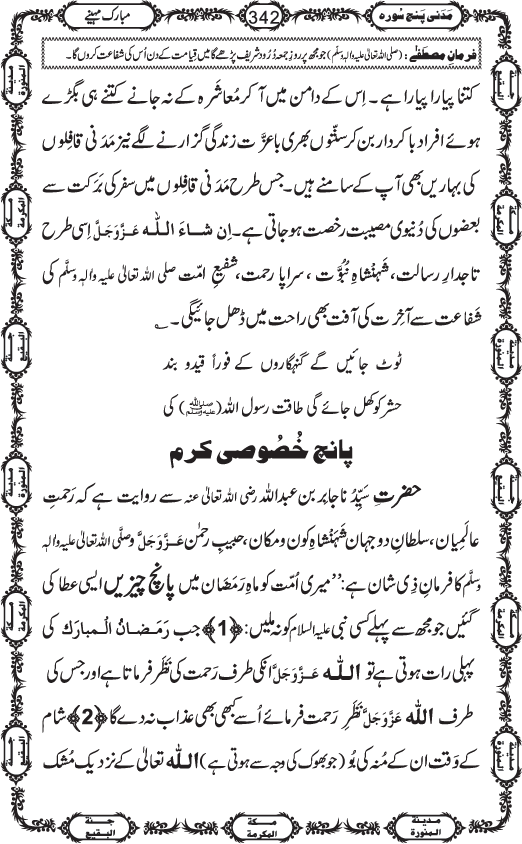 مَدَنی پنج سورہ
342
مبارک مہینے
فرمانِ مصطفٰے : (صلی اللہ تعالیٰ علیہ واٰلہٖ وسلّم) جو مجھ پر روزِ جمعہ دُرُود شریف پڑھے گا میں قیامت کے دن اُس کی شفاعت کروں گا۔
کتنا پیارا پیارا ہے۔ اِس کے دامن میں آ کر مُعاشَرہ کے نہ جانے کتنے ہی بگڑے
ہوئے افراد با کردار بن کر سنّتوں بھری باعزّت زندگی گزارنے لگے نیز مَدَنی قافِلوں
کی بہاریں بھی آپ کے سامنے ہیں۔ جس طرح مَدَنی قافِلوں میں سفر کی بَرَکت سے
بعضوں کی دُنیوی مصیبت رخصت ہو جاتی ہے۔ اِن شاءَ اللہ عَزَّوَجَلَّ اِسی طرح
تاجدارِ رسالت، شَہَنشاہِ نُبُوَّت ، سراپا رحمت، شفیعِ امّت صلی اللہ تعالیٰ علیہ واٰلہٖ وسلَّم کی
شَفاعت سے آخِرت کی آفت بھی راحت میں ڈھل جائیگی۔ ؎
ٹوٹ جائیں گے گنہگاروں کے فوراً قیدو بند
حشر کو کھل جائے گی طاقت رسول اللہ(ﷺ) کی
پانچ خُصُوصی کرم
حضرتِ سَیِّدُ نا جابر بن عبداللہ رضی اللہ تعالیٰ عنہ سے روایت ہے کہ رَحمتِ
عالَمِیان، سلطانِ دو جہان شَہَنشاہِ کون و مکان، حبیبِ رحمٰن عَزَّوَجَلَّ وصلَّی اللہ تعالیٰ علیہ واٰلہٖ
وسلَّم کا فرمانِ ذِی شان ہے:’’میری اُمّت کو ماہِ رَمَضان میں پانچ چیزیں ایسی عطا کی
گئیں جو مجھ سے پہلے کسی نبی علیہ السلام کو نہ ملیں: ﴿1﴾ جب رَمَضانُ الْمبارَك کی
پہلی رات ہوتی ہے تو اللہ عَزَّوَجَلَّ انکی طرف رَحمت کی نَظَر فرماتا ہے اور جس کی
طرف اللہ عَزَّوَجَلَّ نَظَرِ رَحمت فرمائے اُسے کبھی بھی عذاب نہ دے گا ﴿2﴾ شام
کے وَقت ان کے مُنہ کی بُو ( جو بھوک کی وجہ سے ہوتی ہے ) اللہ تعالیٰ کے نزدیک مُشک
مدینۃ المنورۃ
جنۃ البقیع
مکۃ المکرمۃ
مکۃ المکرمۃ
جنۃ البقیع
مدینۃ المنورۃ
مدینۃ المنورۃ
جنۃ البقیع
مکۃ المکرمۃ
مکۃ المکرمۃ
جنۃ البقیع
مدینۃ المنورۃ
جنۃ البقیع
مکۃ المکرمۃ
مدینۃ المنورۃ